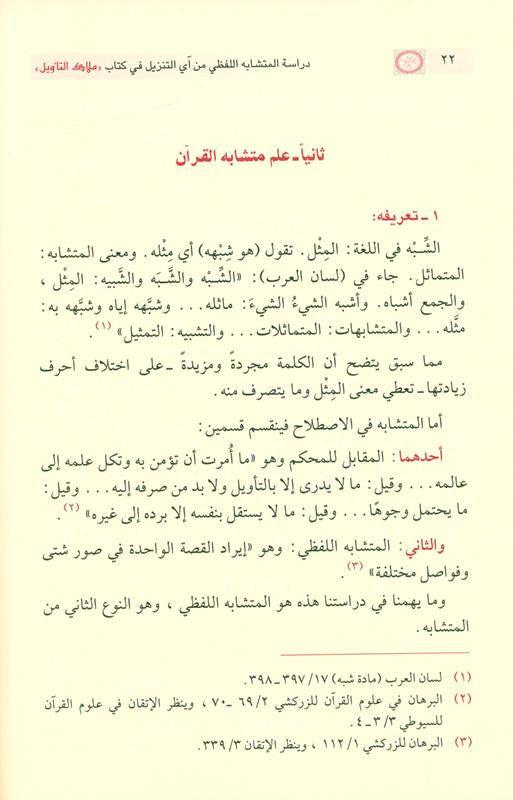 ٢٢
دراسة المتشابه اللفظي من آي التنزيل في كتاب «ملاك التأويل»
ثانياً ـ علم متشابه القرآن
١ ـ تعريفه:
الشِّبْه في اللغة: المِثْل. تقول (هو شِبْهه) أي مِثْله. ومعنى المتشابه:
المتماثل. جاء في (لسان العرب): «الشِّبْه والشَّبَه والشَّبيه: المِثْل ،
والجمع أشباه. وأشبه الشيءُ الشيءَ: ماثله... وشبَّهه إياه وشبَّهه به:
مثَّله... والمتشابهات: المتماثلات... والتشبيه: التمثيل» (١).
مما سبق يتضح أن الكلمة مجردةً ومزيدةً ـ على اختلاف أحرف
زيادتها ـ تعطي معنى المِثْل وما يتصرف منه.
أما المتشابه في الاصطلاح فينقسم قسمين:
أحدهما: المقابل للمحكم وهو «ما أُمرت أن تؤمن به وتكل علمه إلى
عالمه... وقيل: ما لا يدرى إلا بالتأويل ولا بد من صرفه إليه... وقيل:
ما يحتمل وجوهًا... وقيل: ما لا يستقل بنفسه إلا برده إلى غيره» (٢).
والثاني: المتشابه اللفظي: وهو «إيراد القصة الواحدة في صور شتى
وفواصل مختلفة» (٣).
وما يهمنا في دراستنا هذه هو المتشابه اللفظي ، وهو النوع الثاني من
المتشابه.
(١) لسان العرب (مادة شبه) ١٧/ ٣٩٧ ـ ٣٩٨.
(٢) البرهان في علوم القرآن للزركشي ٢/ ٦٩ ـ ٧٠ ، وينظر الإتقان في علوم القرآن
للسيوطي ٣/ ٣ ـ ٤.
(٣) البرهان للزركشي ١/ ١١٢ ، وينظر الإتقان ٣/ ٣٣٩.